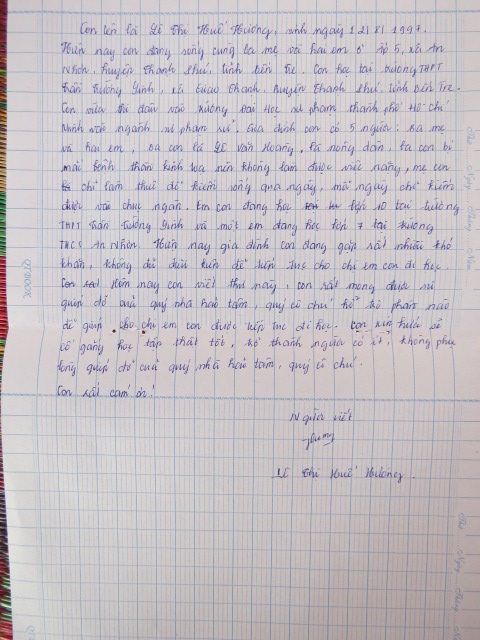 Con tên là Lê Thị Huế Hương, sinh ngày 12/8/1997.
Hiện nay con đang sống cùng ba mẹ và hai em ở Ấp 5, xã An
Nhơn, huyện Thạnh Phú, tỉnh Bến Tre. Con học tại trường THPT
Trần Trường Sinh, xã Giao Thạnh, huyện Thạnh Phú, tỉnh Bến Tre.
Con vừa thi đậu vào trường Đại Học sư phạm thành phố Hồ Chí
Minh vào ngành sư phạm sử. Gia đình con có 5 người. Ba mẹ
và hai em, ba con là Lê Văn Hoàng, là nông dân, ba con bị
mắc bệnh thần kinh tọa nên không làm được việc nặng, mẹ con
chỉ làm thuê để kiếm sống qua ngày, mỗi ngày chỉ kiếm
được vài chục ngàn. Em con đang học lớp 10 tại trường
THPT Trần Trường Sinh và một em đang học lớp 7 tại trường
THCS An Nhơn. Hiện nay gia đình con đang gặp rất nhiều khó
khăn, không đủ điều kiện để tiếp tục cho chị em con đi học.
Hôm nay con viết thư này, con rất mong được sự
giúp đỡ của quý nhà hảo tâm, quý cô chú hỗ trợ phần nào
để giúp cho chị em con được tiếp tục đi học. Con xin hứa sẽ
cố gắng học tập thật tốt, trở thành người có ích, không phụ
lòng giúp đỡ của quý nhà hảo tâm, quý cô chú.
Con rất cám ơn!
Người viết
Lê Thị Huế Hương